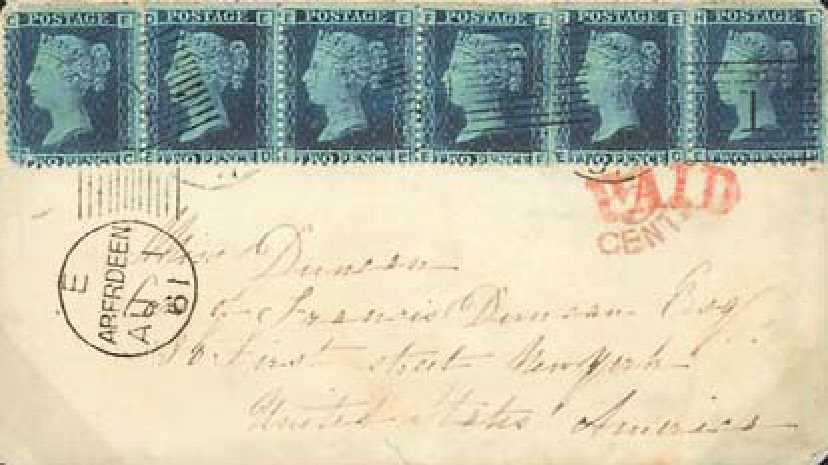 POSTAGE POSTAGE POSTAGE POSTAGE POSTAGE POSTAGE
TWO PENCE TWO PENCE TWO PENCE TWO PENCE TWO PENCE TWO PENCE
PAID
CENTS
E
ABERDEEN
61
Miss Duncan
Francis Duncan Esq
street New York
United States America